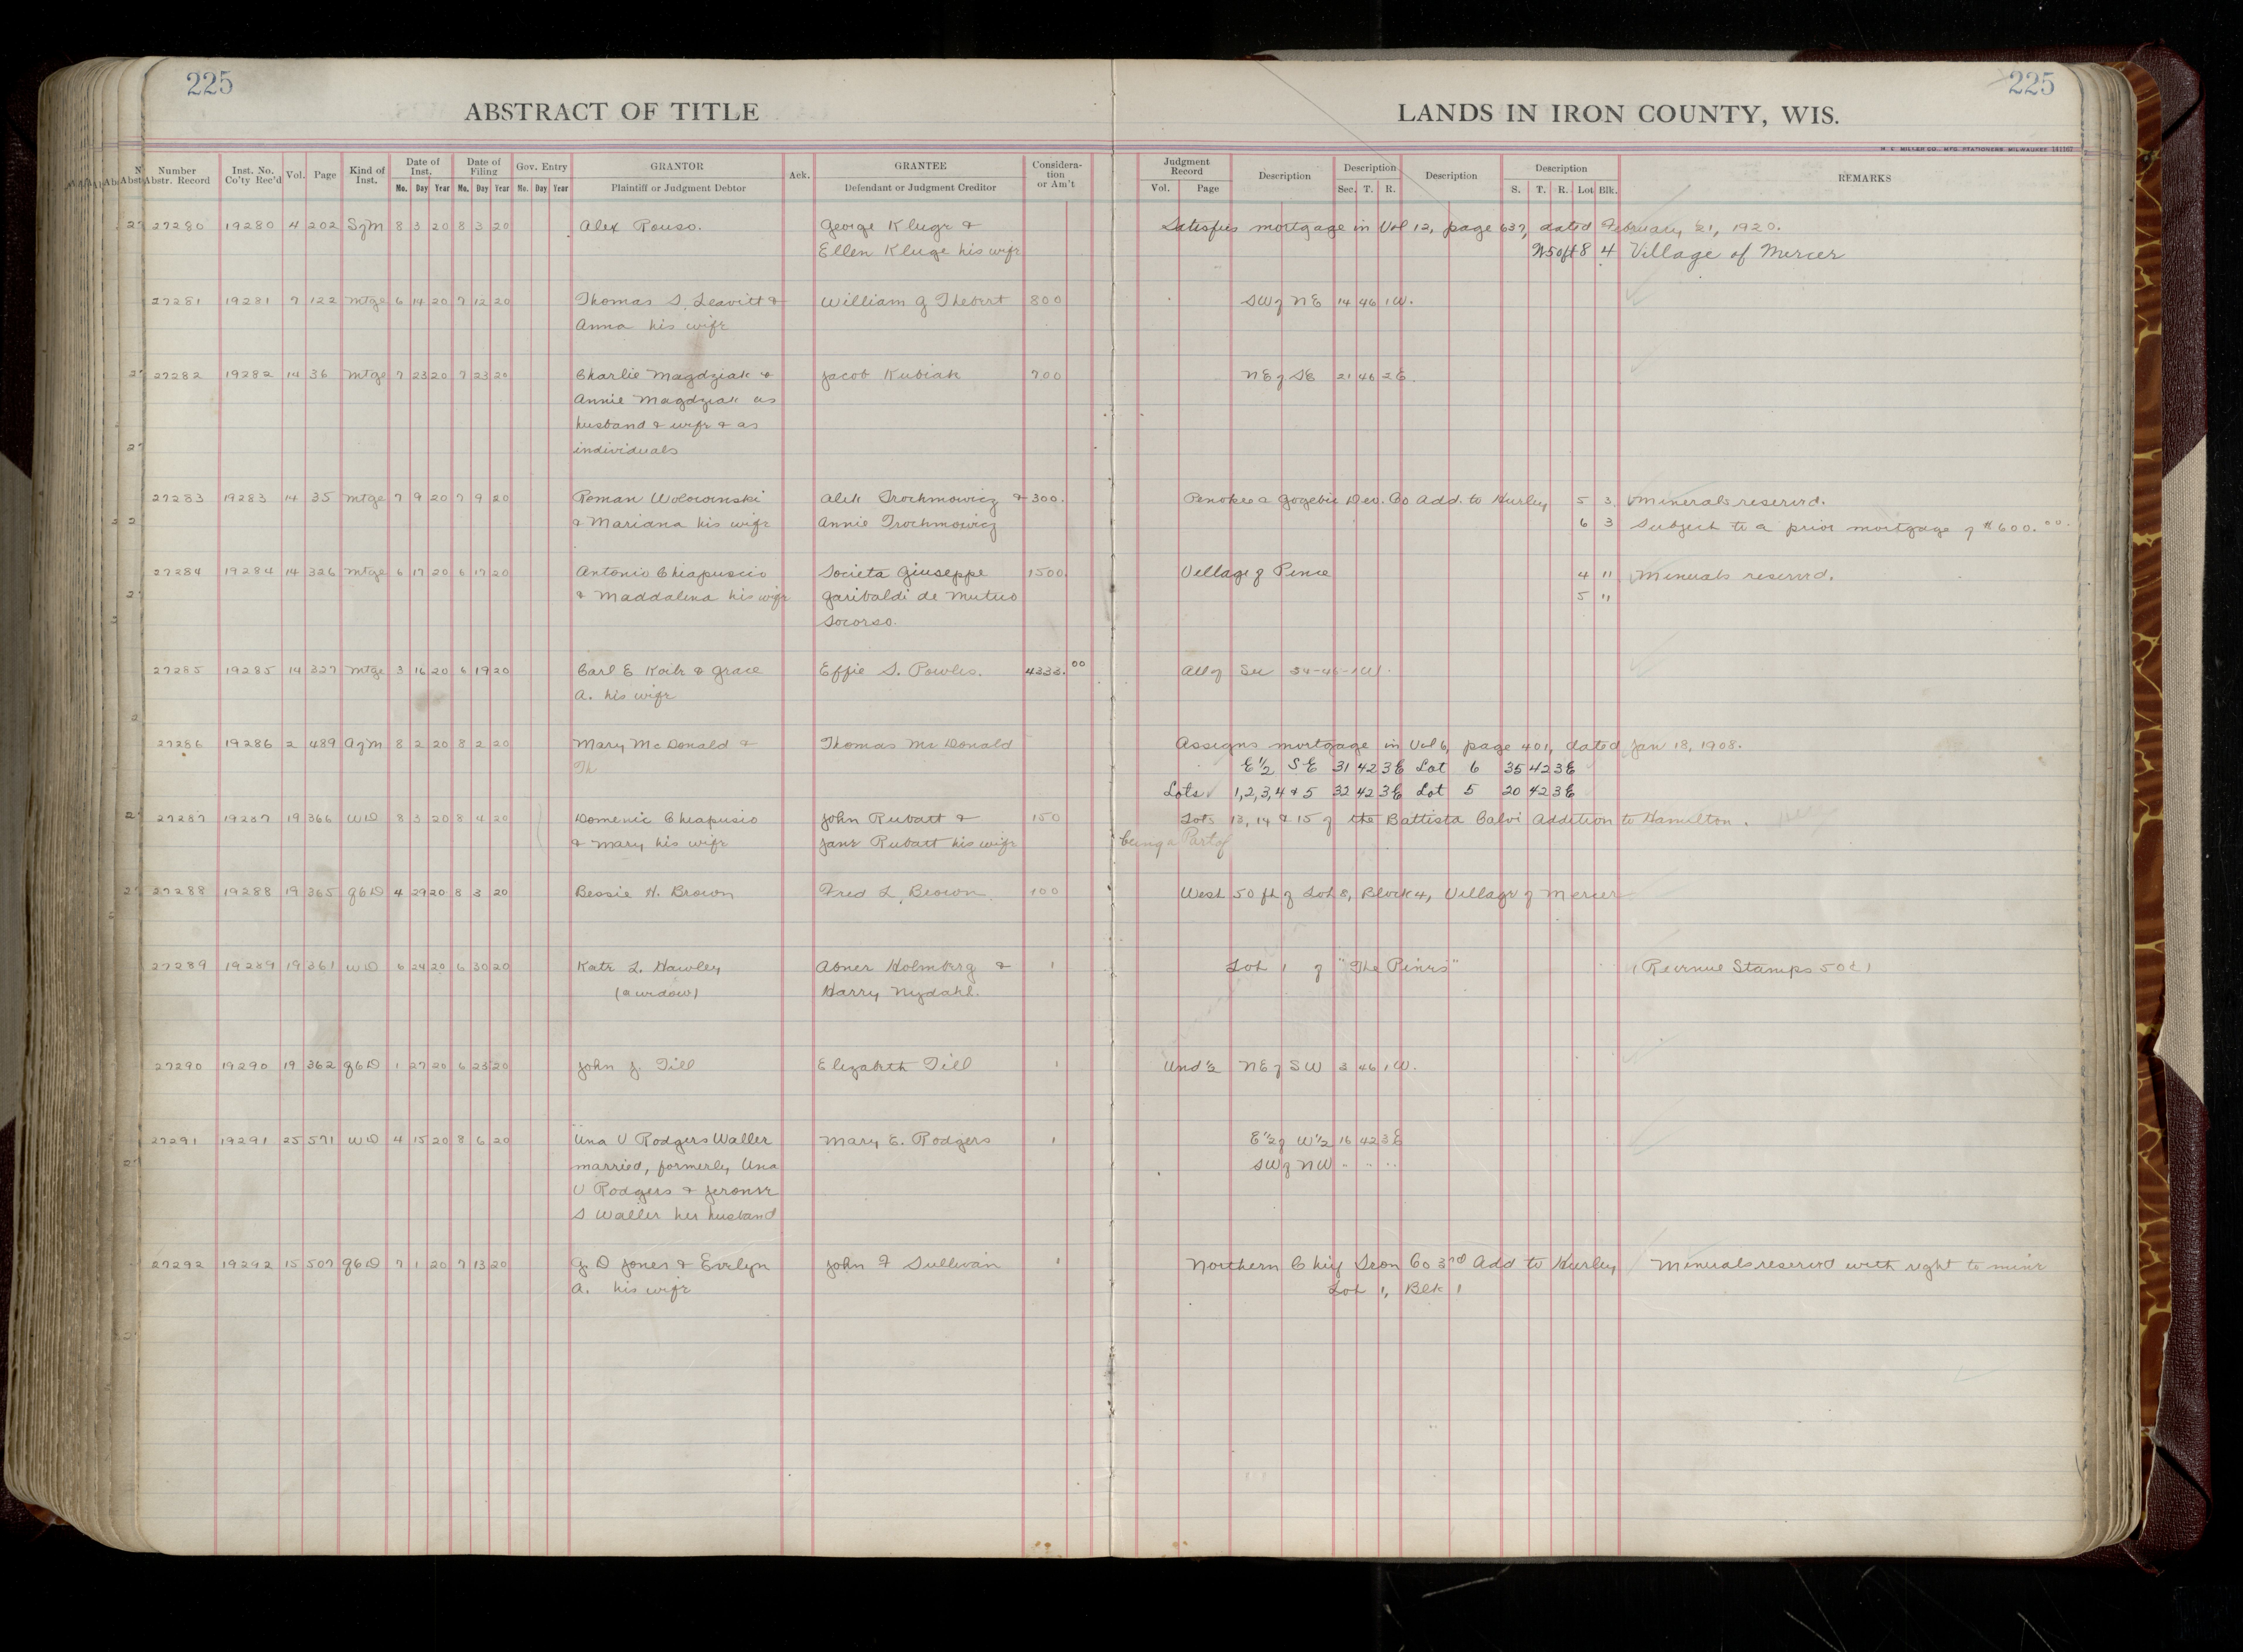 225 225
ABSTRACT OF TITLE LANDS IN IRON COUNTY, WIS.
M. E. MILLER CO., MFG. STATIONERS, MILWAUKEE
Number Abstr. Record Inst. No. Co'ty Rec'd Vol. Page Kind of Inst. Date of Inst. Mo. Day Year Date of Filing Mo. Day Year Gov. Entry Mo. Day Year GRANTOR Plaintiff or Judgment Debtor Ack. GRANTEE Defendant or Judgment Creditor Considera-tion or Am't Judgment Record Vol. Page Description Description Sec. T. R. Description Description S. T. R. Lot Blk. REMARKS
27280 19280 4 202 SgM 8 3 20 8 3 20 Alex Rouso. George Kluge & Satisfies mortgage in Vol 12, page 637, dated February 21, 1920.
Ellen Kluge his wife W50ft 8 4 Village of Mercer
27281 19281 7 122 Mtge 6 14 20 7 12 20 Thomas S. Leavitt & William G Thebert 800 SW of NE 14 46 1W.
Anna his wife
27282 19282 14 36 Mtge 7 23 20 7 23 20 Charlie Magdziak & Jacob Kubiak 700 NE of SE 21 46 2E.
Annie Magdziak as
husband & wife & as
individuals
27283 19283 14 35 Mtge 7 9 20 7 9 20 Roman Wolowinski Alek Trochmowicz & 300. Penokee & Gogebic Dev. Co Add. to Hurley 5 3 Minerals reserved.
& Mariana his wife Annie Trochmowicz 6 3 Subject to a prior mortgage of $600.00
27284 19284 14 326 Mtge 6 17 20 6 17 20 Antonio Chiapuscio Societa Giuseppe 1500. Village of Pence 4 11 Minerals reserved.
& Maddalena his wife Garibaldi de Mutuo 5 11
Socorso.
27285 19285 14 327 Mtge 3 16 20 6 19 20 Carl E Koils & Grace Effie S. Powles. 4333.00 All of Sec 34-46-1W.
A. his wife
27286 19286 2 489 AgM 8 2 20 8 2 20 Mary McDonald & Thomas McDonald Assigns mortgage in Vol 6, page 401, dated Jan 18, 1908.
Th E1/2 SE 31 42 3E Lot 6 35 42 3E
Lots 1,2,3,4 & 5 32 42 3E Lot 5 20 42 3E
27287 19287 19 366 WD 8 3 20 8 4 20 Domenic Chiapusio John Rubatt & 150 Lots 13, 14 & 15 of the Battista Calvi Addition to Hamilton.
& Mary his wife Jane Rubatt his wife being a Part of
27288 19288 19 365 QCD 4 29 20 8 3 20 Bessie H. Brown Fred L. Brown 100 West 50 ft of Lot 8, Block 4, Village of Mercer
27289 19289 19 361 WD 6 24 20 6 30 20 Kate L. Hawley Abner Holmberg & 1 Lot 1 of "The Pines" (Revenue Stamps 50¢)
(a widow) Harry Nydahl.
27290 19290 19 362 QCD 1 27 20 6 23 20 John J. Till Elizabeth Till 1 Und 1/2 NE of SW 3 46 1W.
27291 19291 25 571 WD 4 15 20 8 6 20 Una V Rodgers Waller Mary E. Rodgers 1 E1/2 of W1/2 16 42 3E
married, formerly Una SW of NW " " "
V Rodgers & Jerome
S Waller her husband
27292 19292 15 507 QCD 7 1 20 7 13 20 G. D Jones & Evelyn John F Sullivan 1 Northern Chief Iron Co 3rd Add to Hurley Minerals reserved with right to mine
A. his wife Lot 1, Blk 1